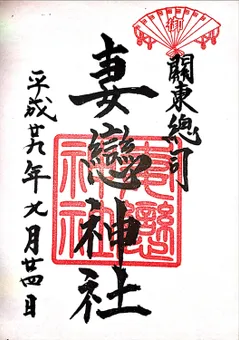 關東總司
妻戀神社
平成廿九年九月廿四日
妻戀
神社